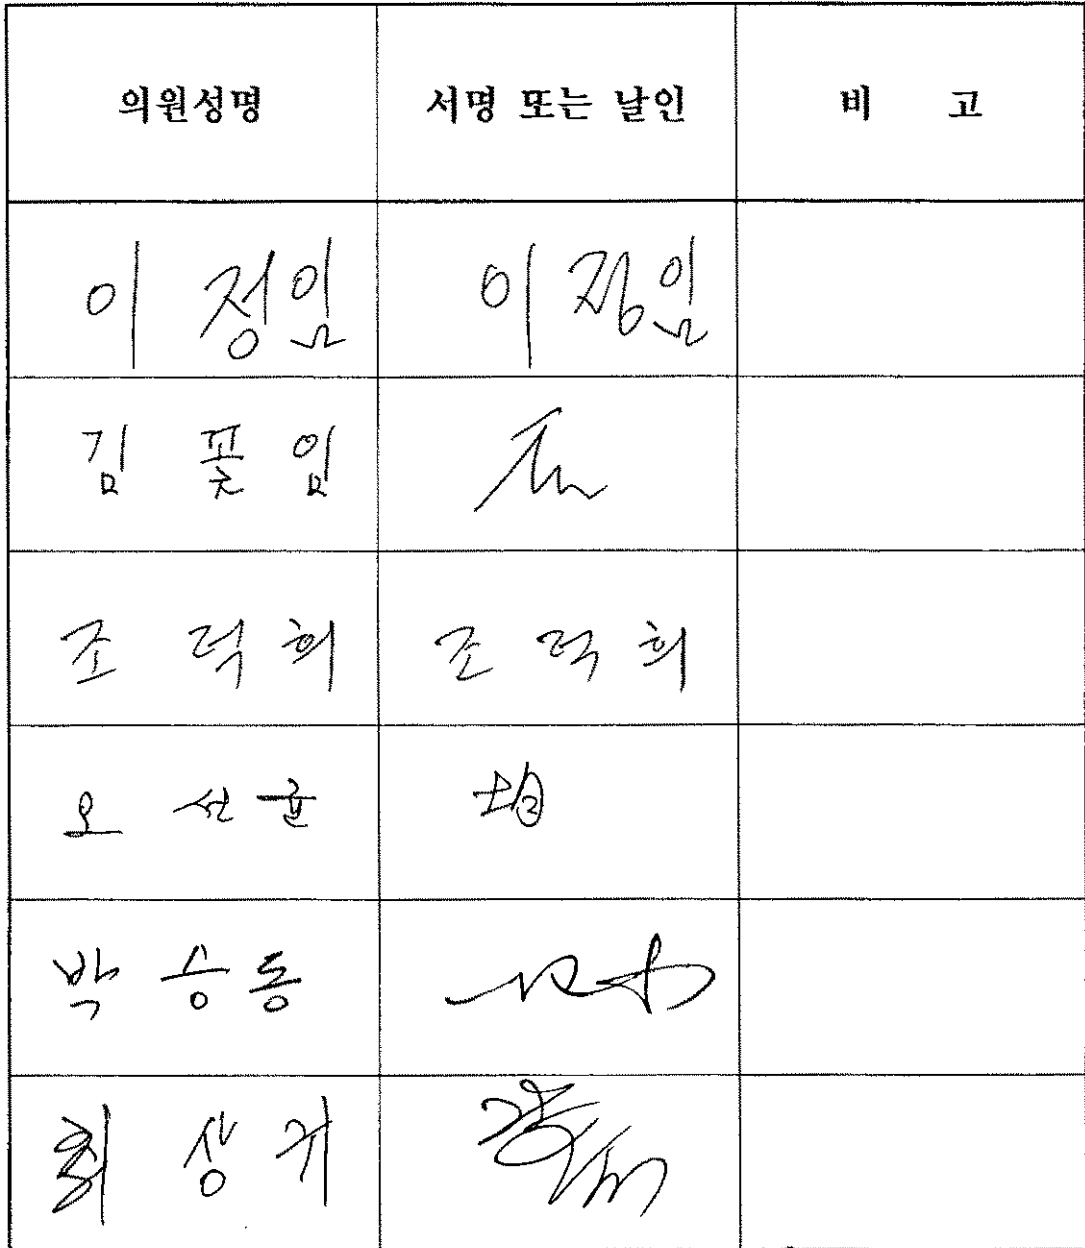 의원성명 서명 또는 날인 비 고
이 정임 이 정임
김 꽃 임
조 덕 희 조 덕 희
오 선 균 均
박 승 동
최 상 귀